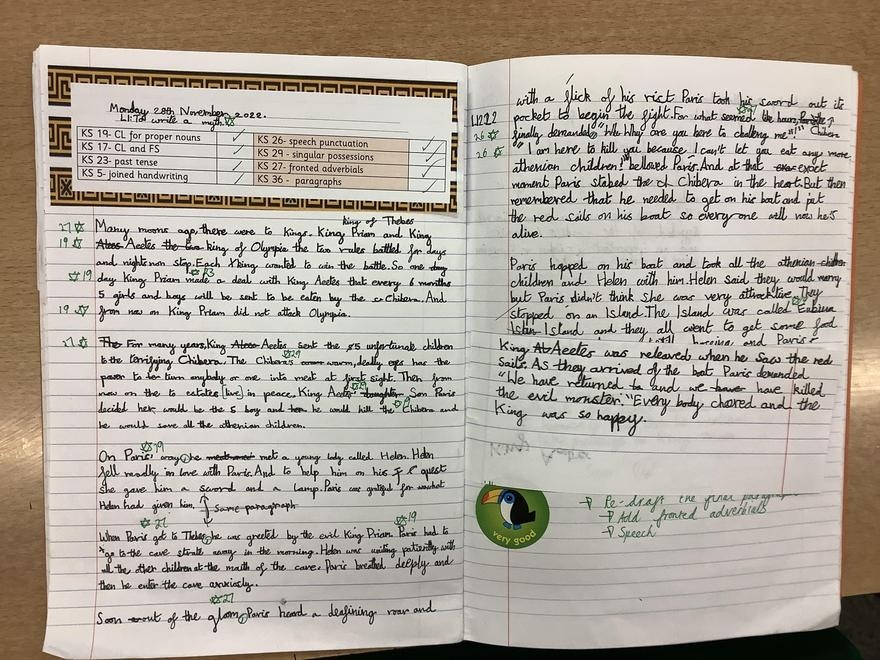 Monday 28th November 2022.
LI: To write a myth.
KS 19- CL for proper nouns
KS 17- CL and FS
KS 23- past tense
KS 5- joined handwriting
KS 26- speech punctuation
KS 29 - singular possessions
KS 27- fronted adverbials
KS 36 - paragraphs
king of Thebes
27 Many moons ago, there were to kings. King Priam and King
19 Aeetes the two king of Olympia the two rules battled for days
and nights non stop. Each king wanted to win the battle. So one day
19 day King Priam made a deal with King Aeetes that every 6 months
5 girls and boys will be sent to be eaten by the Chibera. And
19 from now on King Priam did not attack Olympia.
27 The For many years, King Aeetes sent the 5 unfortunate children
to the terrifying Chibera. The Chibera's warm, deally eyes has the
power to turn anybody or one into meet at first sight. Then from
now on the to estates live in peace. King Aeetes' daughter Son Paris
decided he would be the 5 boy and he would kill the Chibera and
he would save all the athenian children.
19
On Paris' way, he met a young lady called Helen. Helen
fell madly in love with Paris. And to help him on his quest
she gave him a sword and a Lamp. Paris was grateful for
Helen had given him.
Same paragraph
27 19
When Paris got to Thebes, he was greeted by the evil King Priam. Paris had to
go to the cave straight away in the morning. Helen was waiting patiently with
all the other children at the mouth of the cave. Paris breathed deeply and
then he enter the cave anxiously.
27
Soon out of the gloom, Paris heard a deafining roar and
with a flick of his rist Paris took his sword out its
pocket to begin the fight. For what seemed
finally demanded, "Why are you here to challeng me"
Chibera
"I am here to kill you because I can't let you eat any more
athenian children!" bellowed Paris. And at that exact
moment Paris stabed the Chibera in the heart. But then
remembered that he needed to get on his boat and put
the red sails on his boat so every-one will now he's
alive.
Paris hopped on his boat and took all the athenian
children and Helen with him. Helen said they would marry
but Paris didn't think she was very attractive. They
stopped on an Island. The Island was called
Island and they all went to get some food
King Aeetes was releaved when he saw the red
sails. As they arrived of the boat Paris demanded
"We have returned and we have killed
the evil monster." Every body cheered and the
King was so happy.
very good
Re-draft the final paragraph
Add fronted adverbials
Speech